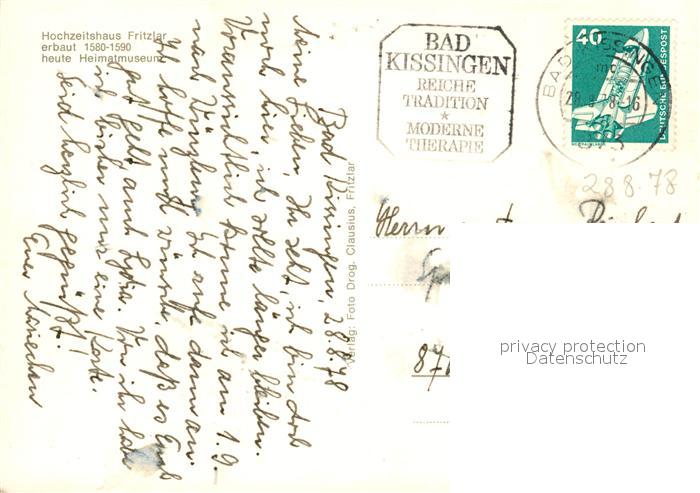 Hochzeitshaus Fritzlar
erbaut 1580-1590
heute Heimatmuseum
Bad Kissingen, 28.8.78
Meine Lieben, Ihr seht, ich bin doch
noch hier, ich sollte länger bleiben.
Voraussichtlich komme ich am 1.9.
nach Würzburg. Ich rufe dann an.
Ich hoffe und wünsche, daß es Euch
gut geht, auch Lydia. Von ihr habe
ich bisher nur eine Karte.
Seid herzlich gegrüßt!
Eure Mariechen
Verlag: Foto Drog. Clausius, Fritzlar
BAD
KISSINGEN
REICHE
TRADITION
*
MODERNE
THERAPIE
BAD KISSINGEN
28.8.78-16
40
DEUTSCHE BUNDESPOST
28 8.78
Herrn
87
privacy protection
Datenschutz